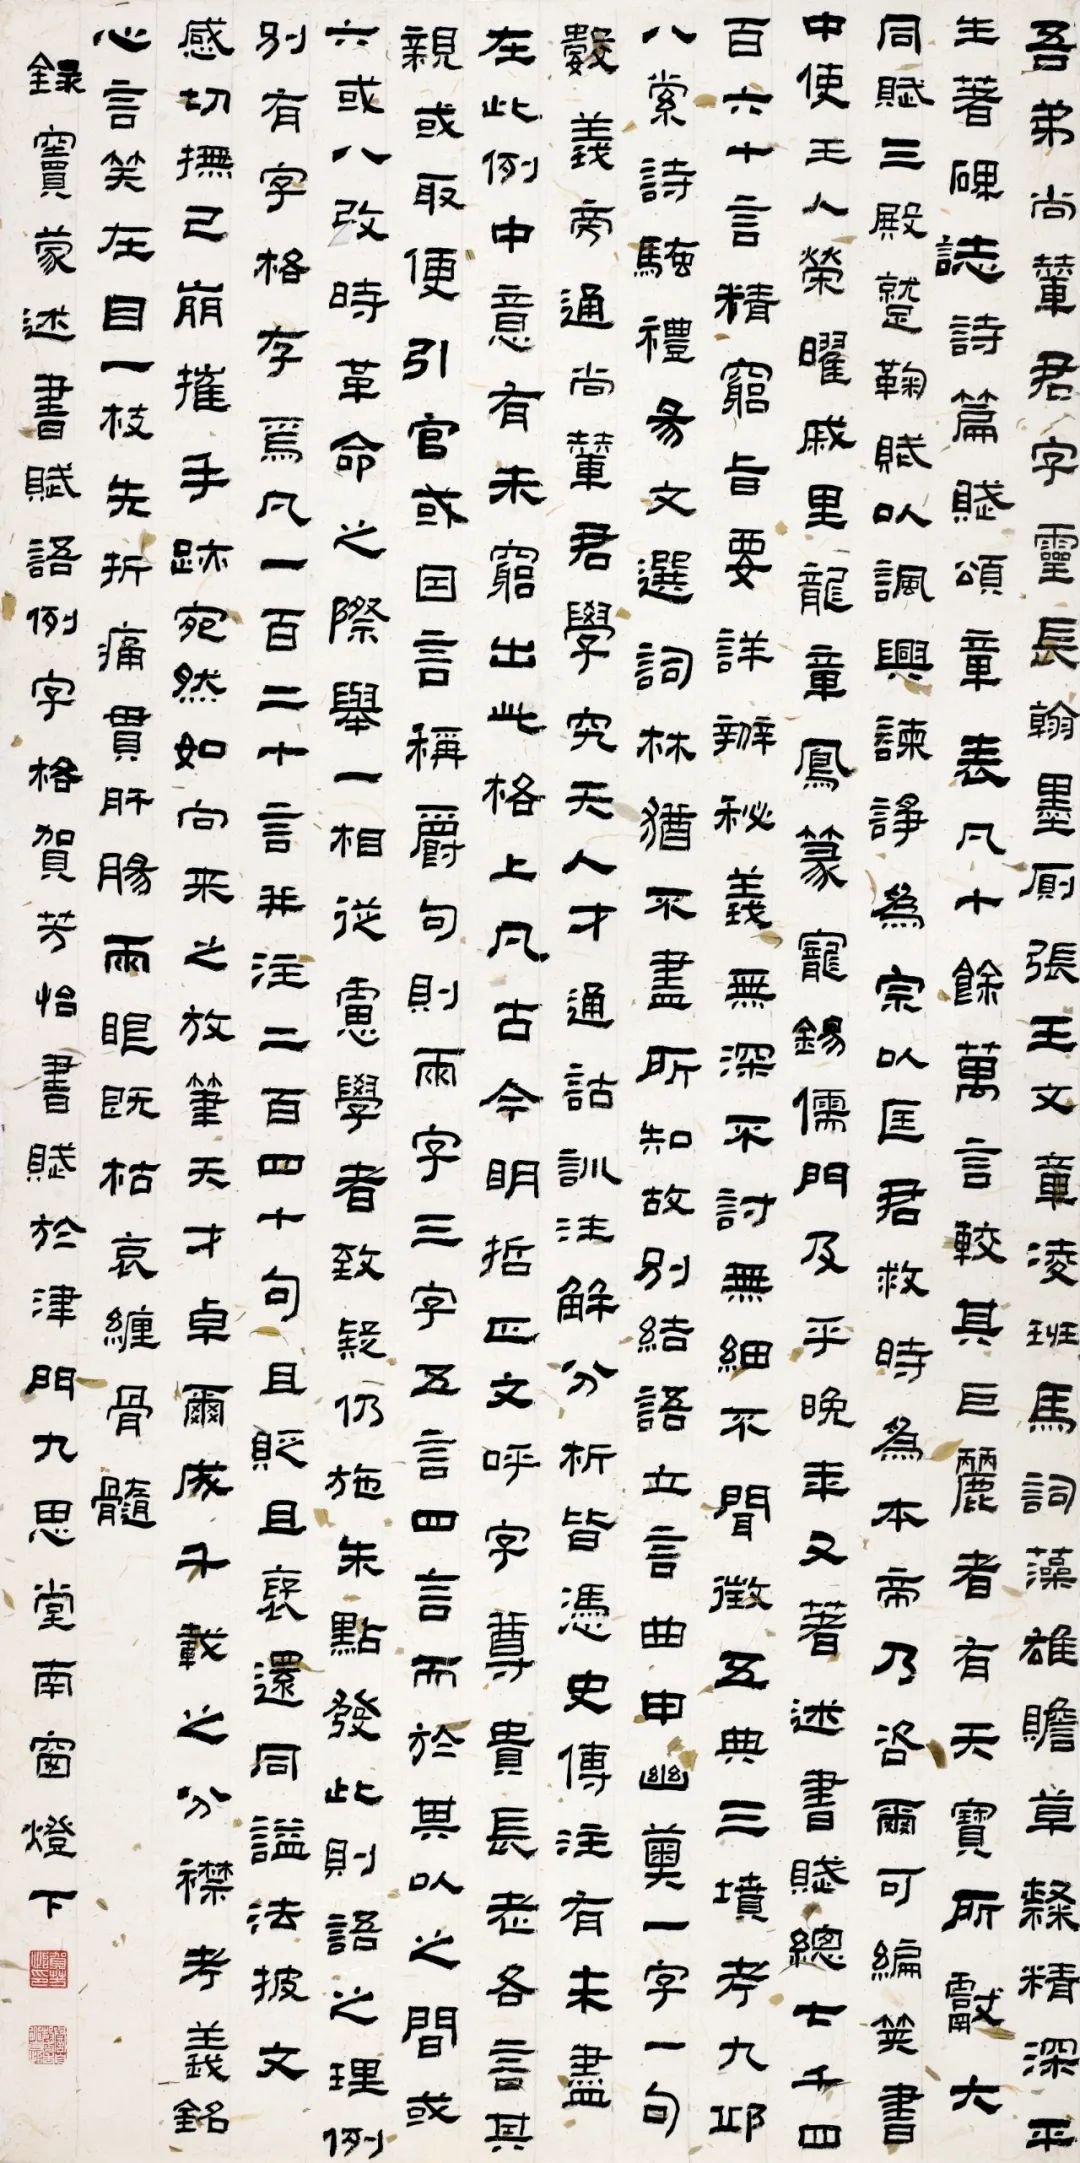 吾弟尚輦君字靈長翰墨厠張王文章凌班馬詞藻雄贍草隸精深平
生著碑誌詩篇賦頌章表凡十餘萬言較其巨麗者有天寶所獻大
同賦三殿蹵鞠賦以諷興諫諍為宗以匡君救時為本帝乃咨爾可編筴書
中使王人榮曜戚里龍章鳳篆寵錫儒門及乎晚年又著述書賦總七千四
百六十言精窮旨要詳辨秘義無深不討無細不聞徵五典三墳考九邱
八索詩騷禮易文選詞林猶不盡所知故別結語立言曲申幽奧一字一句
數義旁通尚輦君學究天人才通詁訓注解分析皆憑史傳注有未盡
在此例中意有未窮出此格上凡古今明哲正文呼字尊貴長老各言其
親或取便引官或因言稱爵句則兩字三字五言四言而於其以之間或
六或八改時革命之際舉一相從慮學者致疑仍施朱點發此則語之理例
別有字格存焉凡一百二十言并注二百四十句且貶且褒還同謚法披文
感切撫己崩摧手跡宛然如向來之放筆天才卓爾成千載之分襟考義銘
心言笑在目一枝先折痛貫肝腸兩眼既枯哀纏骨髓
錄竇蒙述書賦語例字格賀芳怡書賦於津門九思堂南窗燈下